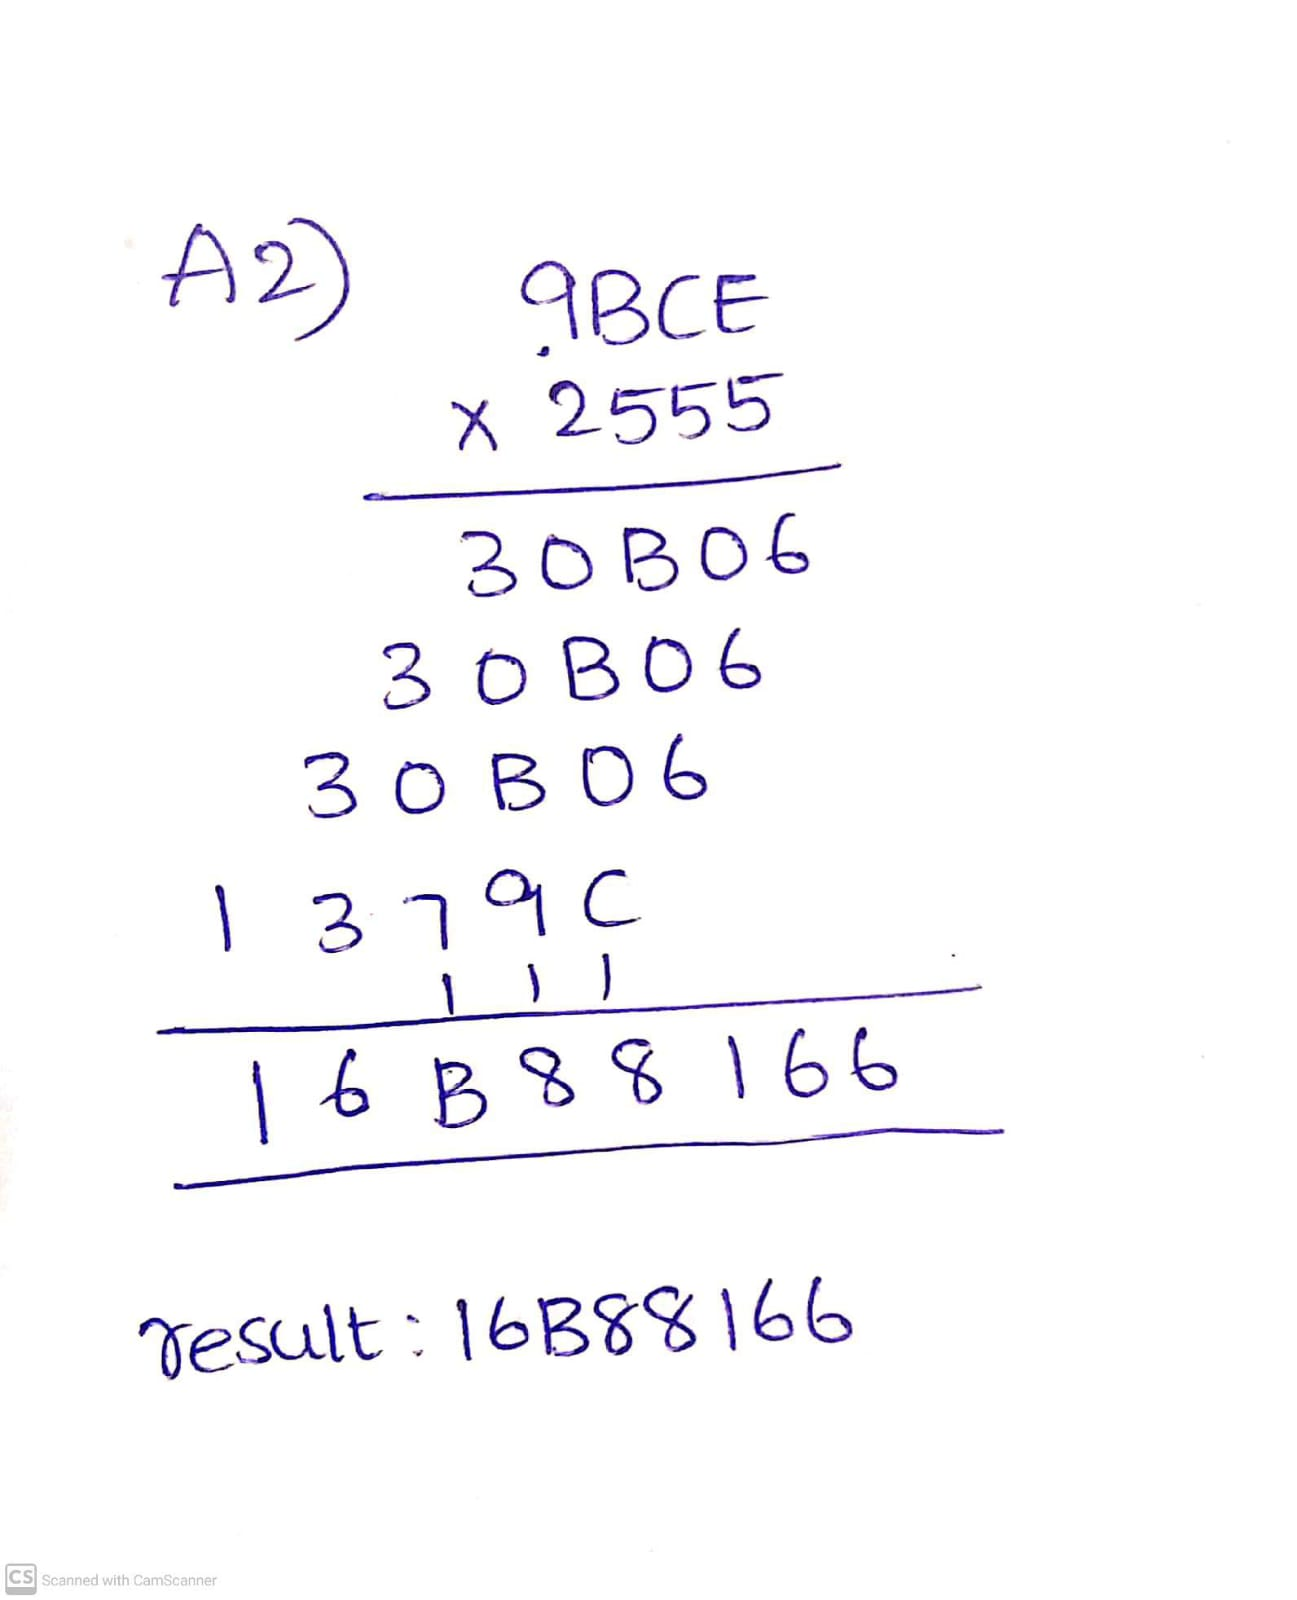 A2)
9BCE
x 2555
30B06
30B06
30B06
1379C
1 1 1
16B88166
result: 16B88166
CS Scanned with CamScanner